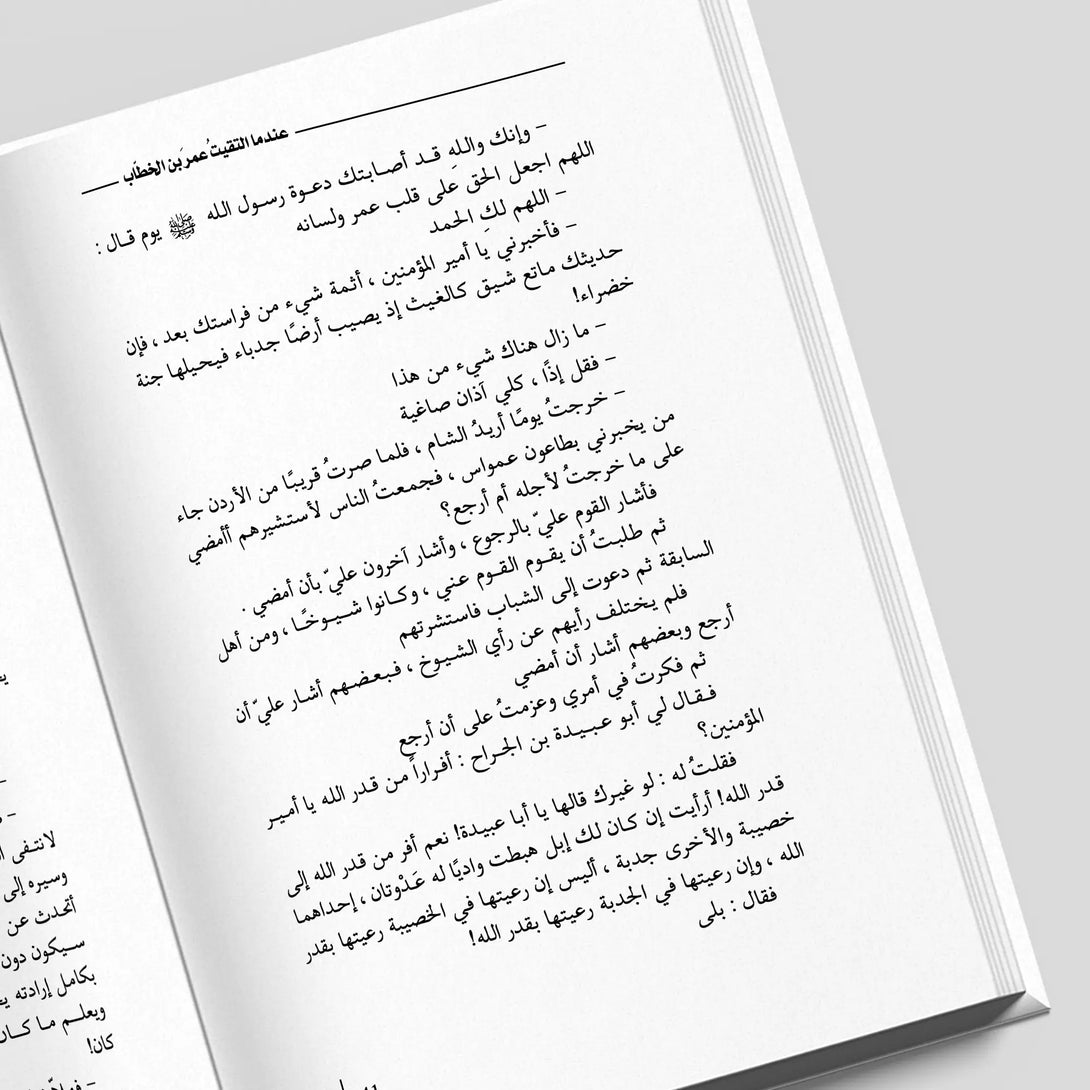 عندما التقيتُ عمرَ بن الخطّاب
- وإنك واللهِ قد أصابتك دعوة رسول الله ﷺ يوم قال :
اللهم اجعل الحق على قلب عمر ولسانه
- اللهم لكِ الحمد
- فأخبرني يا أمير المؤمنين ، أثمة شيء من فراستك بعد ، فإن
حديثك ماتع شيق كالغيث إذ يصيب أرضًا جدباء فيحيلها جنة
خضراء!
- ما زال هناك شيء من هذا
- فقل إذًا ، كلي آذان صاغية
- خرجتُ يومًا أريدُ الشام ، فلما صرتُ قريبًا من الأردن جاء
من يخبرني بطاعون عمواس ، فجمعتُ الناس لأستشيرهم أأمضي
على ما خرجتُ لأجله أم أرجع؟
فأشار القوم عليّ بالرجوع ، وأشار آخرون عليّ بأن أمضي .
ثم طلبتُ أن يقوم القوم عني ، وكانوا شيوخًا ، ومن أهل
السابقة ثم دعوت إلى الشباب فاستشرتهم
فلم يختلف رأيهم عن رأي الشيوخ ، فبعضهم أشار عليّ أن
أرجع وبعضهم أشار أن أمضي
ثم فكرتُ في أمري وعزمتُ على أن أرجع
فقال لي أبو عبيدة بن الجراح : أفراراً من قدر الله يا أمير
المؤمنين؟
فقلتُ له : لو غيرك قالها يا أبا عبيدة! نعم أفر من قدر الله إلى
قدر الله! أرأيت إن كان لك إبل هبطت واديًا له عَدْوتان ، إحداهما
خصيبة والأخرى جدبة ، أليس إن رعيتها في الخصيبة رعيتها بقدر
الله ، وإن رعيتها في الجدبة رعيتها بقدر الله!
فقال : بلى
لانتفى
وسيره إلى
أتحدث عن
سيكون دون
بكامل إرادته
ويعلم ما كان
كان!